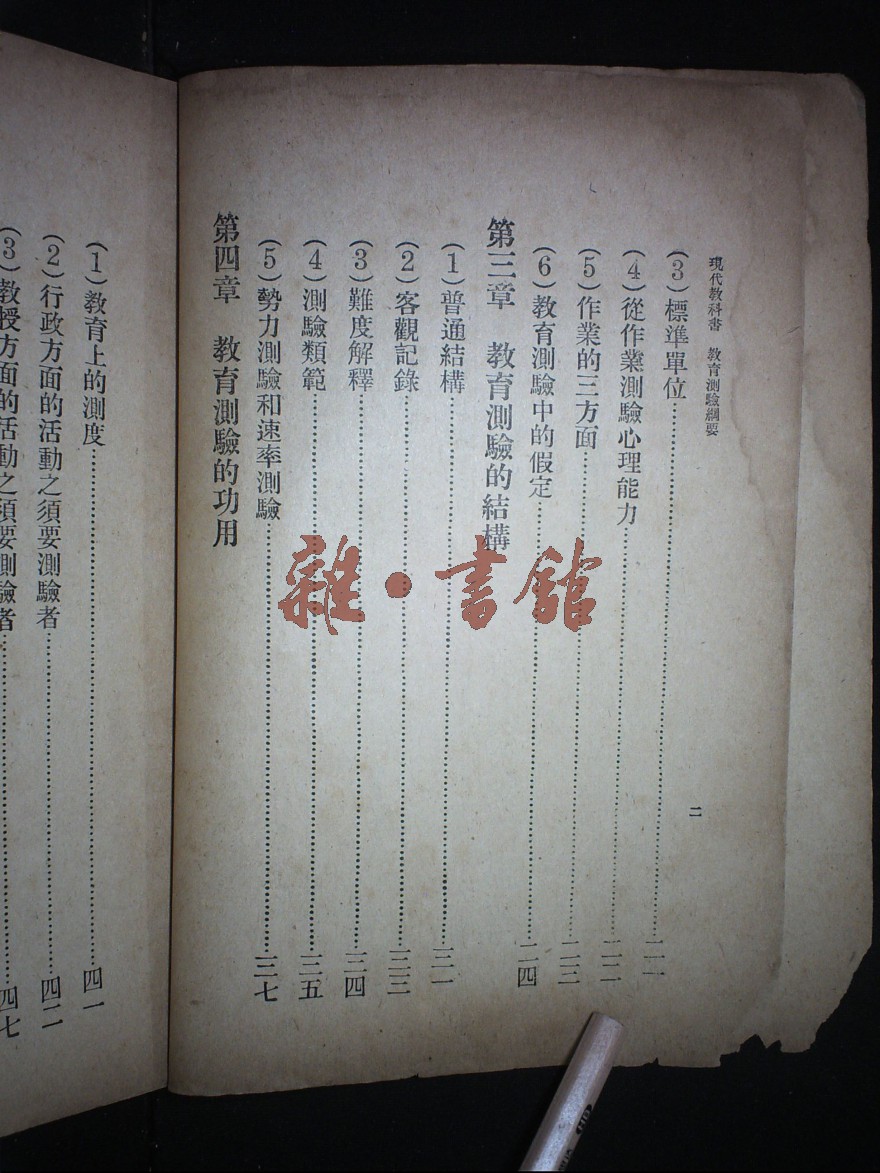 現代教科書　教育測驗綱要
二
（3）標準單位……………二一
（4）從作業測驗心理能力……………二二
（5）作業的三方面……………二三
（6）教育測驗中的假定……………二四
第三章　教育測驗的結構
（1）普通結構……………三一
（2）客觀記錄……………三三
（3）難度解釋……………三四
（4）測驗類範……………三五
（5）勢力測驗和速率測驗……………三七
第四章　教育測驗的功用
（1）教育上的測度……………四一
（2）行政方面的活動之須要測驗者……………四二
（3）教授方面的活動之須要測驗者……………四七
雜·書館